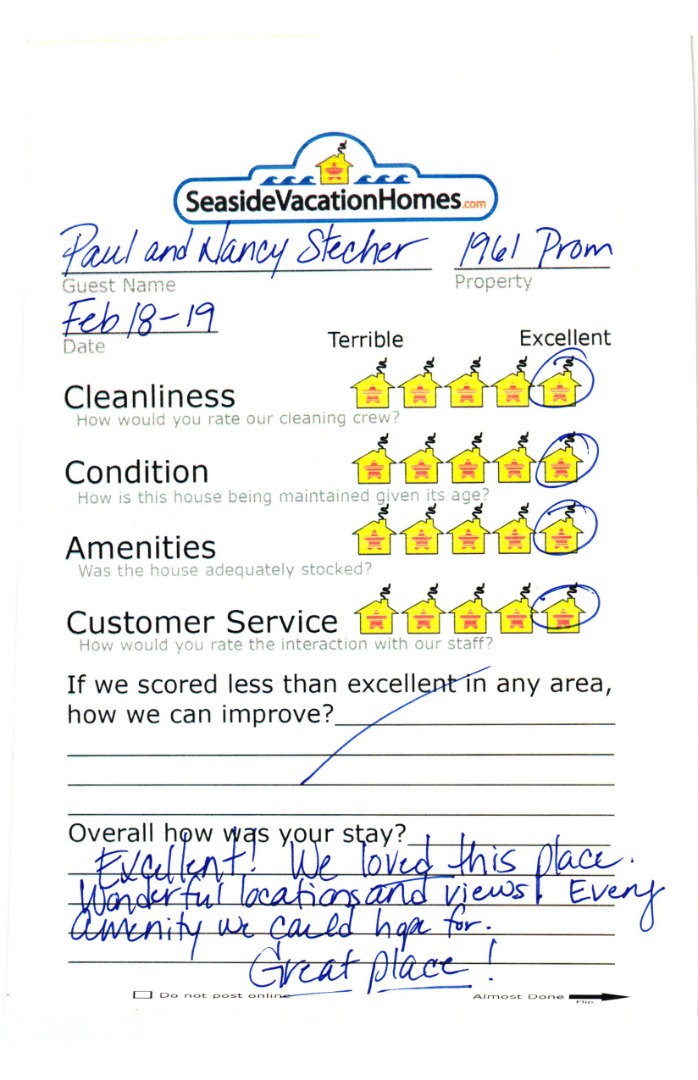 SeasideVacationHomes.com
Paul and Nancy Stecher 1961 Prom
Guest Name Property
Feb 18-19
Date
Terrible Excellent
Cleanliness
How would you rate our cleaning crew?
Condition
How is this house being maintained given its age?
Amenities
Was the house adequately stocked?
Customer Service
How would you rate the interaction with our staff?
If we scored less than excellent in any area,
how we can improve?
Overall how was your stay?
Excellent! We loved this place.
Wonderful locations and views! Every
amenity we could hope for.
Great place!
Do not post online Almost Done
Flip